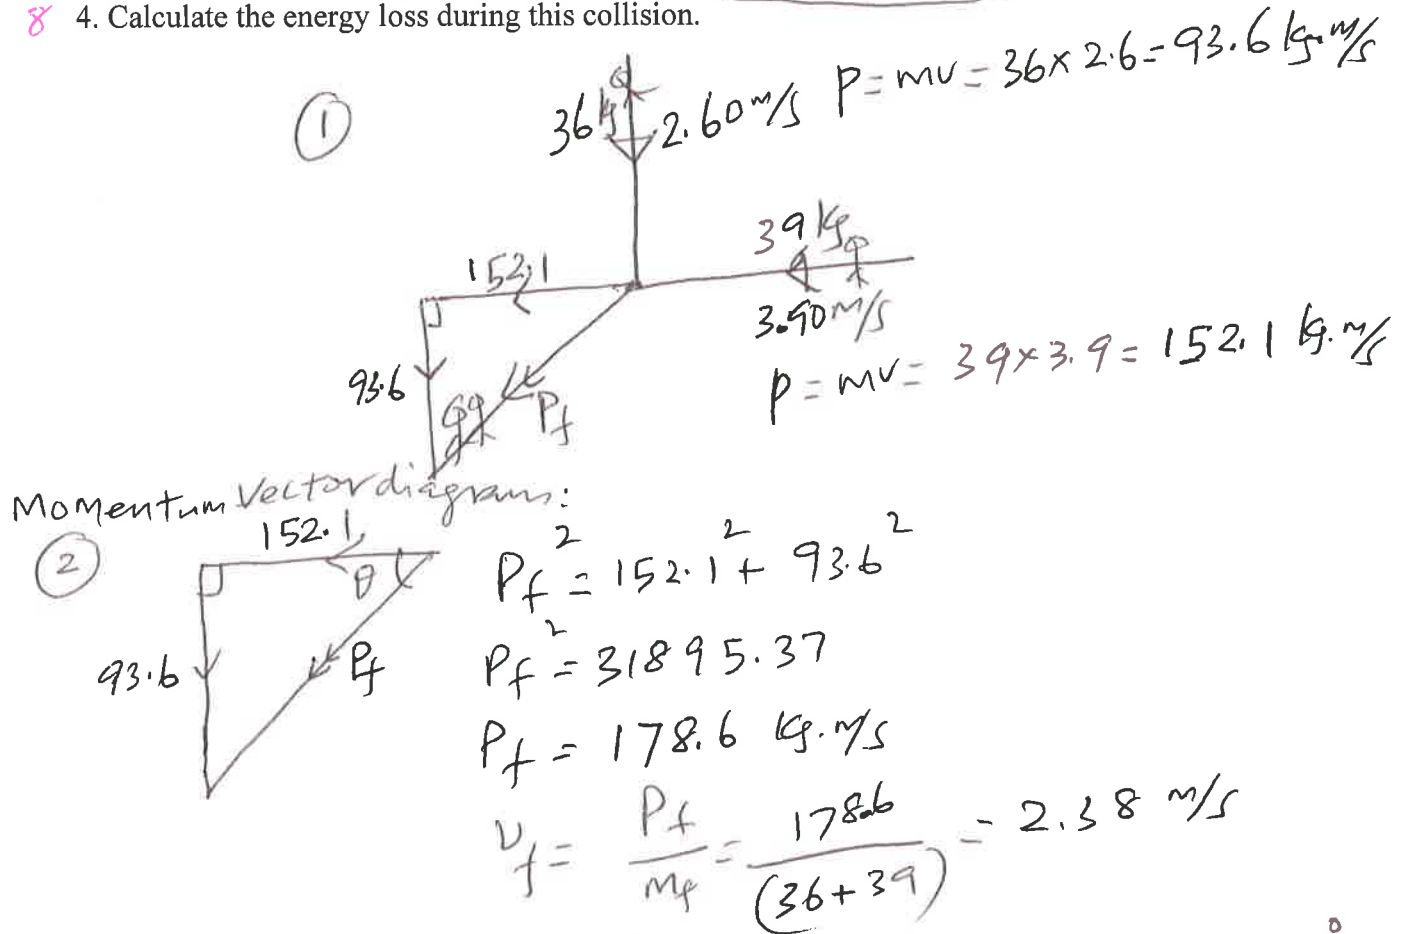 8 4. Calculate the energy loss during this collision.
①
36 kg
2.60 m/s
P = mv = 36 x 2.6 = 93.6 kg.m/s
39 kg
3.90 m/s
P = mv = 39 x 3.9 = 152.1 kg.m/s
152.1
93.6
Pf
Momentum Vector diagram:
②
152.1
θ
93.6
Pf
Pf² = 152.1² + 93.6²
Pf² = 31895.37
Pf = 178.6 kg.m/s
Vf = Pf/Mf = 178.6/(36+39) = 2.38 m/s